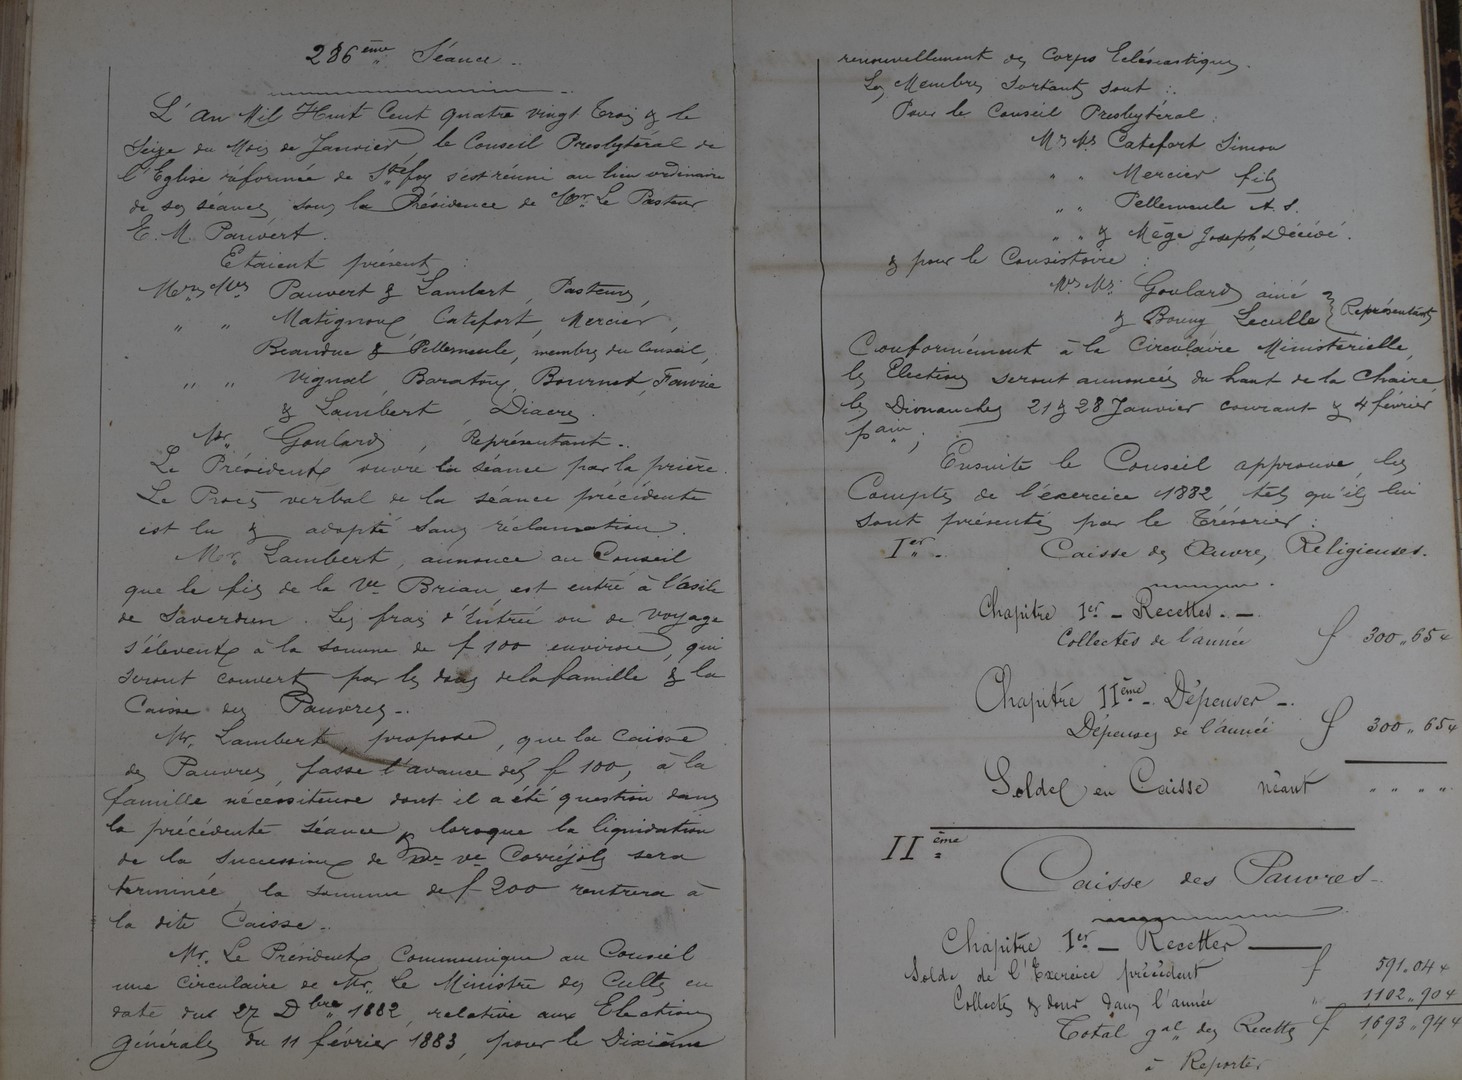 286ème Séance
L'an Mil Huit Cent quatre vingt trois & le
Seize du Mois de Janvier le Conseil Presbytéral de
l'Eglise réformée de Ste foy s'est réuni au lieu ordinaire
de ses séances, sous la Présidence de Mr. Le Pasteur
E. M. Pauvert.
Etaient présents :
Mrs Mrs Pauvert & Lambert, Pasteurs,
" " Matignon, Catefort, Mercier,
& Pellemeule, membres du Conseil,
" " Vignal, Baratou, Bournet, Faurie
& Lambert Diacres.
Mr. Goulard, Représentant.
Le Président ouvre la séance par la prière.
Le Procès verbal de la séance précédente
est lu & adopté sans réclamation.
Mr. Lambert, annonce au Conseil
que le fils de la Ve Brian, est entré à l'asile
de Saverdun. Les frais d'Entrée ou de voyage
s'élevent à la somme de f 100 environ, qui
seront couvert par les dons de la famille & la
Caisse des Pauvres.
Mr. Lambert, propose, que la Caisse
des Pauvres, fasse l'avance des f 100, à la
famille nécessiteuse dont il a été question dans
la précédente séance, & lorsque la liquidation
de la Succession de Me ve Corréjols sera
terminée, la somme de f 200 rentrera à
la dite Caisse.
Mr. Le Président Communique au Conseil
une Circulaire de Mr. Le Ministre des Cultes en
date du 27 Dbre 1882, relative aux Elections
générales du 11 février 1883, pour le Dixième
renouvellement des Corps Eclésiastiques.
Les Membres Sortants sont :
Pour le Conseil Presbytéral :
Mrs Mrs Catefort Simon
" " Mercier fils
" " Pellemeule A. S.
" " & Mège Joseph, Décédé.
& pour le Consistoire :
Mrs Mrs Goulard ainé
& Bouny Leculle } Représentants
Conformément à la Circulaire Ministérielle,
les Elections seront annoncées du haut de la Chaire
les Dimanches 21 & 28 Janvier courant & 4 février
pain ;
Ensuite le Conseil approuve les
Comptes de l'exercice 1882 tels qu'ils lui
sont présentés par le Trésorier :
Ier Caisse des Œuvres Religieuses.
Chapitre Ier - Recettes. -
Collectes de l'année f 300,,65
Chapitre IIème - Dépenses -
Dépenses de l'année f 300,,65
Solde en Caisse néant " " " "
IIème
Caisse des Pauvres
Chapitre Ier - Recettes
Solde de l'Exercice précédent f 591,04
Collectes & dons dans l'année " 1102,,90
Total gal des Recettes f 1,693,,94
à Reporter